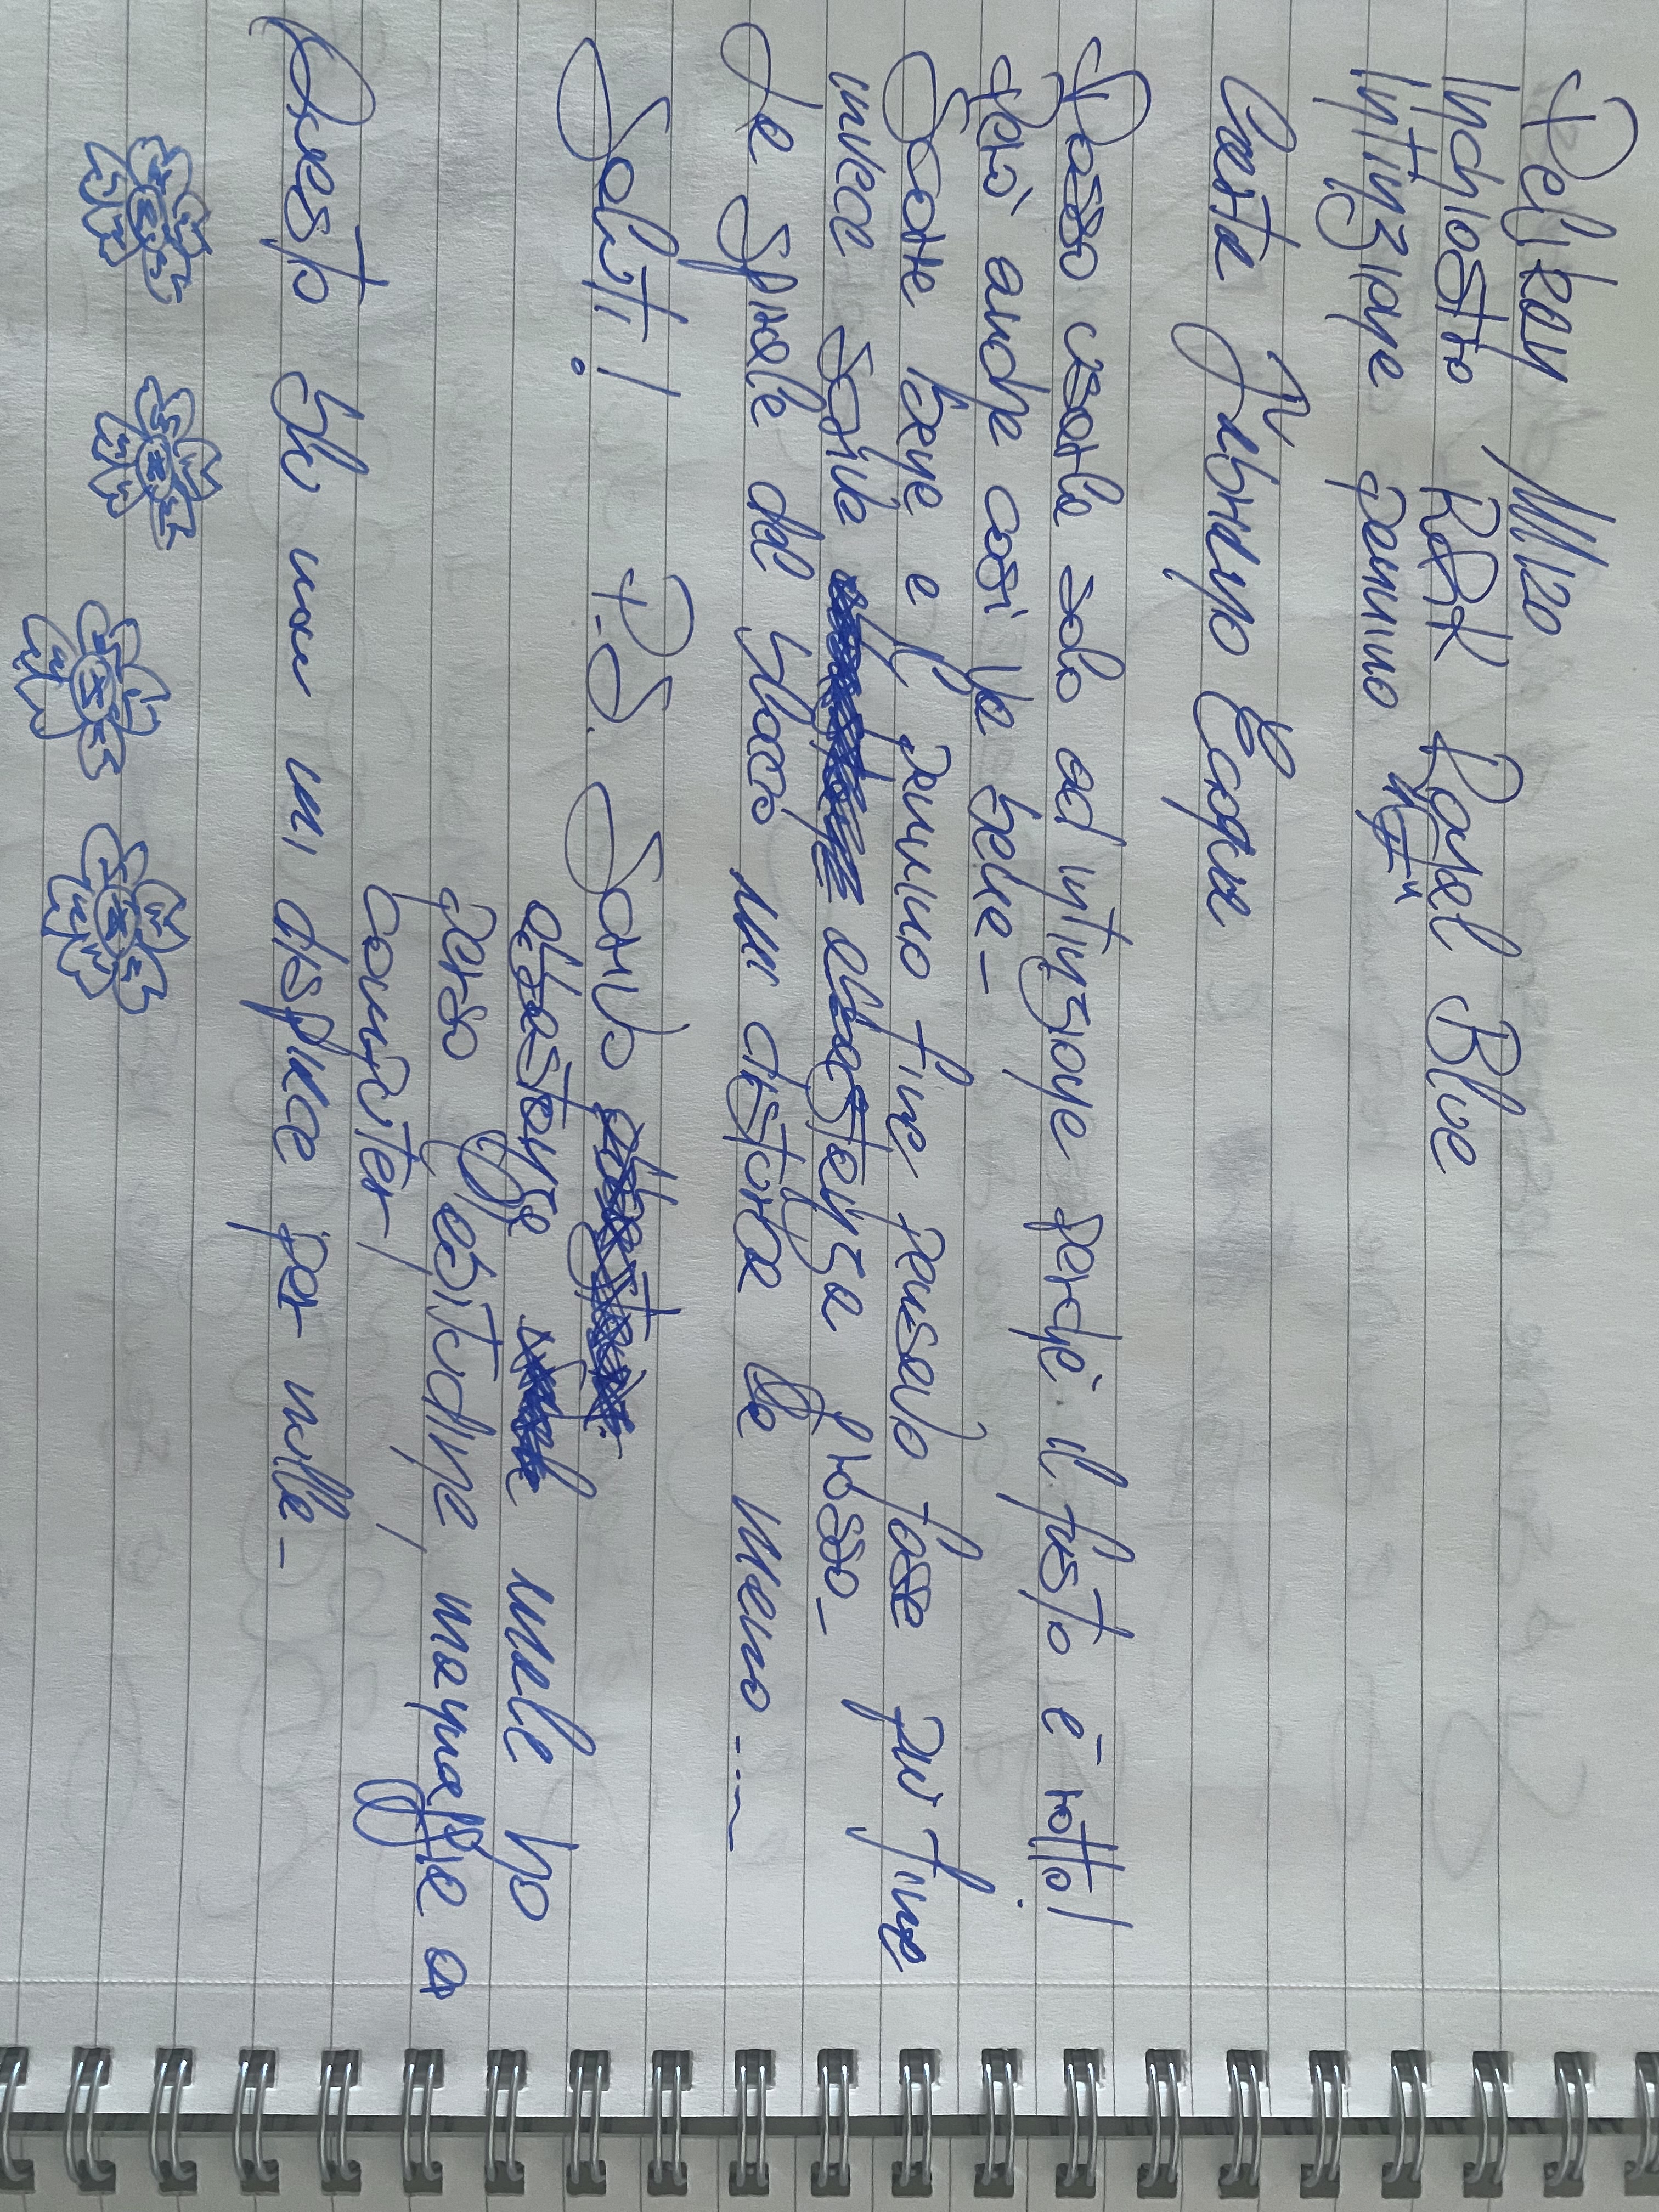 Pelikan M120
Inchiostro R&K Royal Blue
Intinzione pennino "F"
Carta Fabriano Ecoqua
Posso usarla solo ad intinzione perché il fusto è rotto!
Però anche così va bene-
Scorre bene e il pennino fine pensavo fosse più fine
invece scrive abbastanza grosso-
La spirale del blocco mi disturba la mano....
Saluti! P.S. Scrivo
abbastanza male ho
perso l'abitudine, mannaggia al
computer!
Questo blu non mi dispiace per nulla-